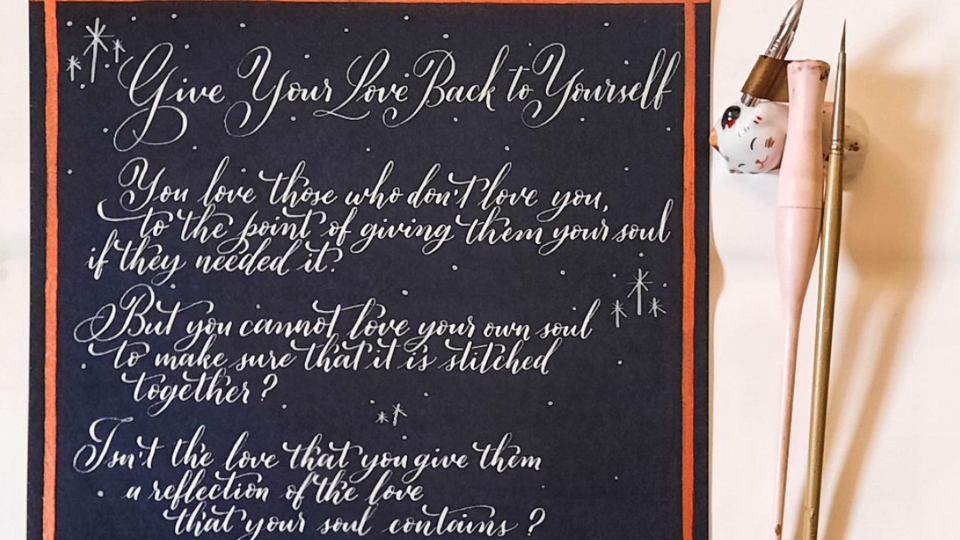 Give Your Love Back to Yourself
You love those who don't love you,
to the point of giving them your soul
if they needed it?
But you cannot love your own soul
to make sure that it is stitched
together?
Isn't the love that you give them
a reflection of the love
that your soul contains?